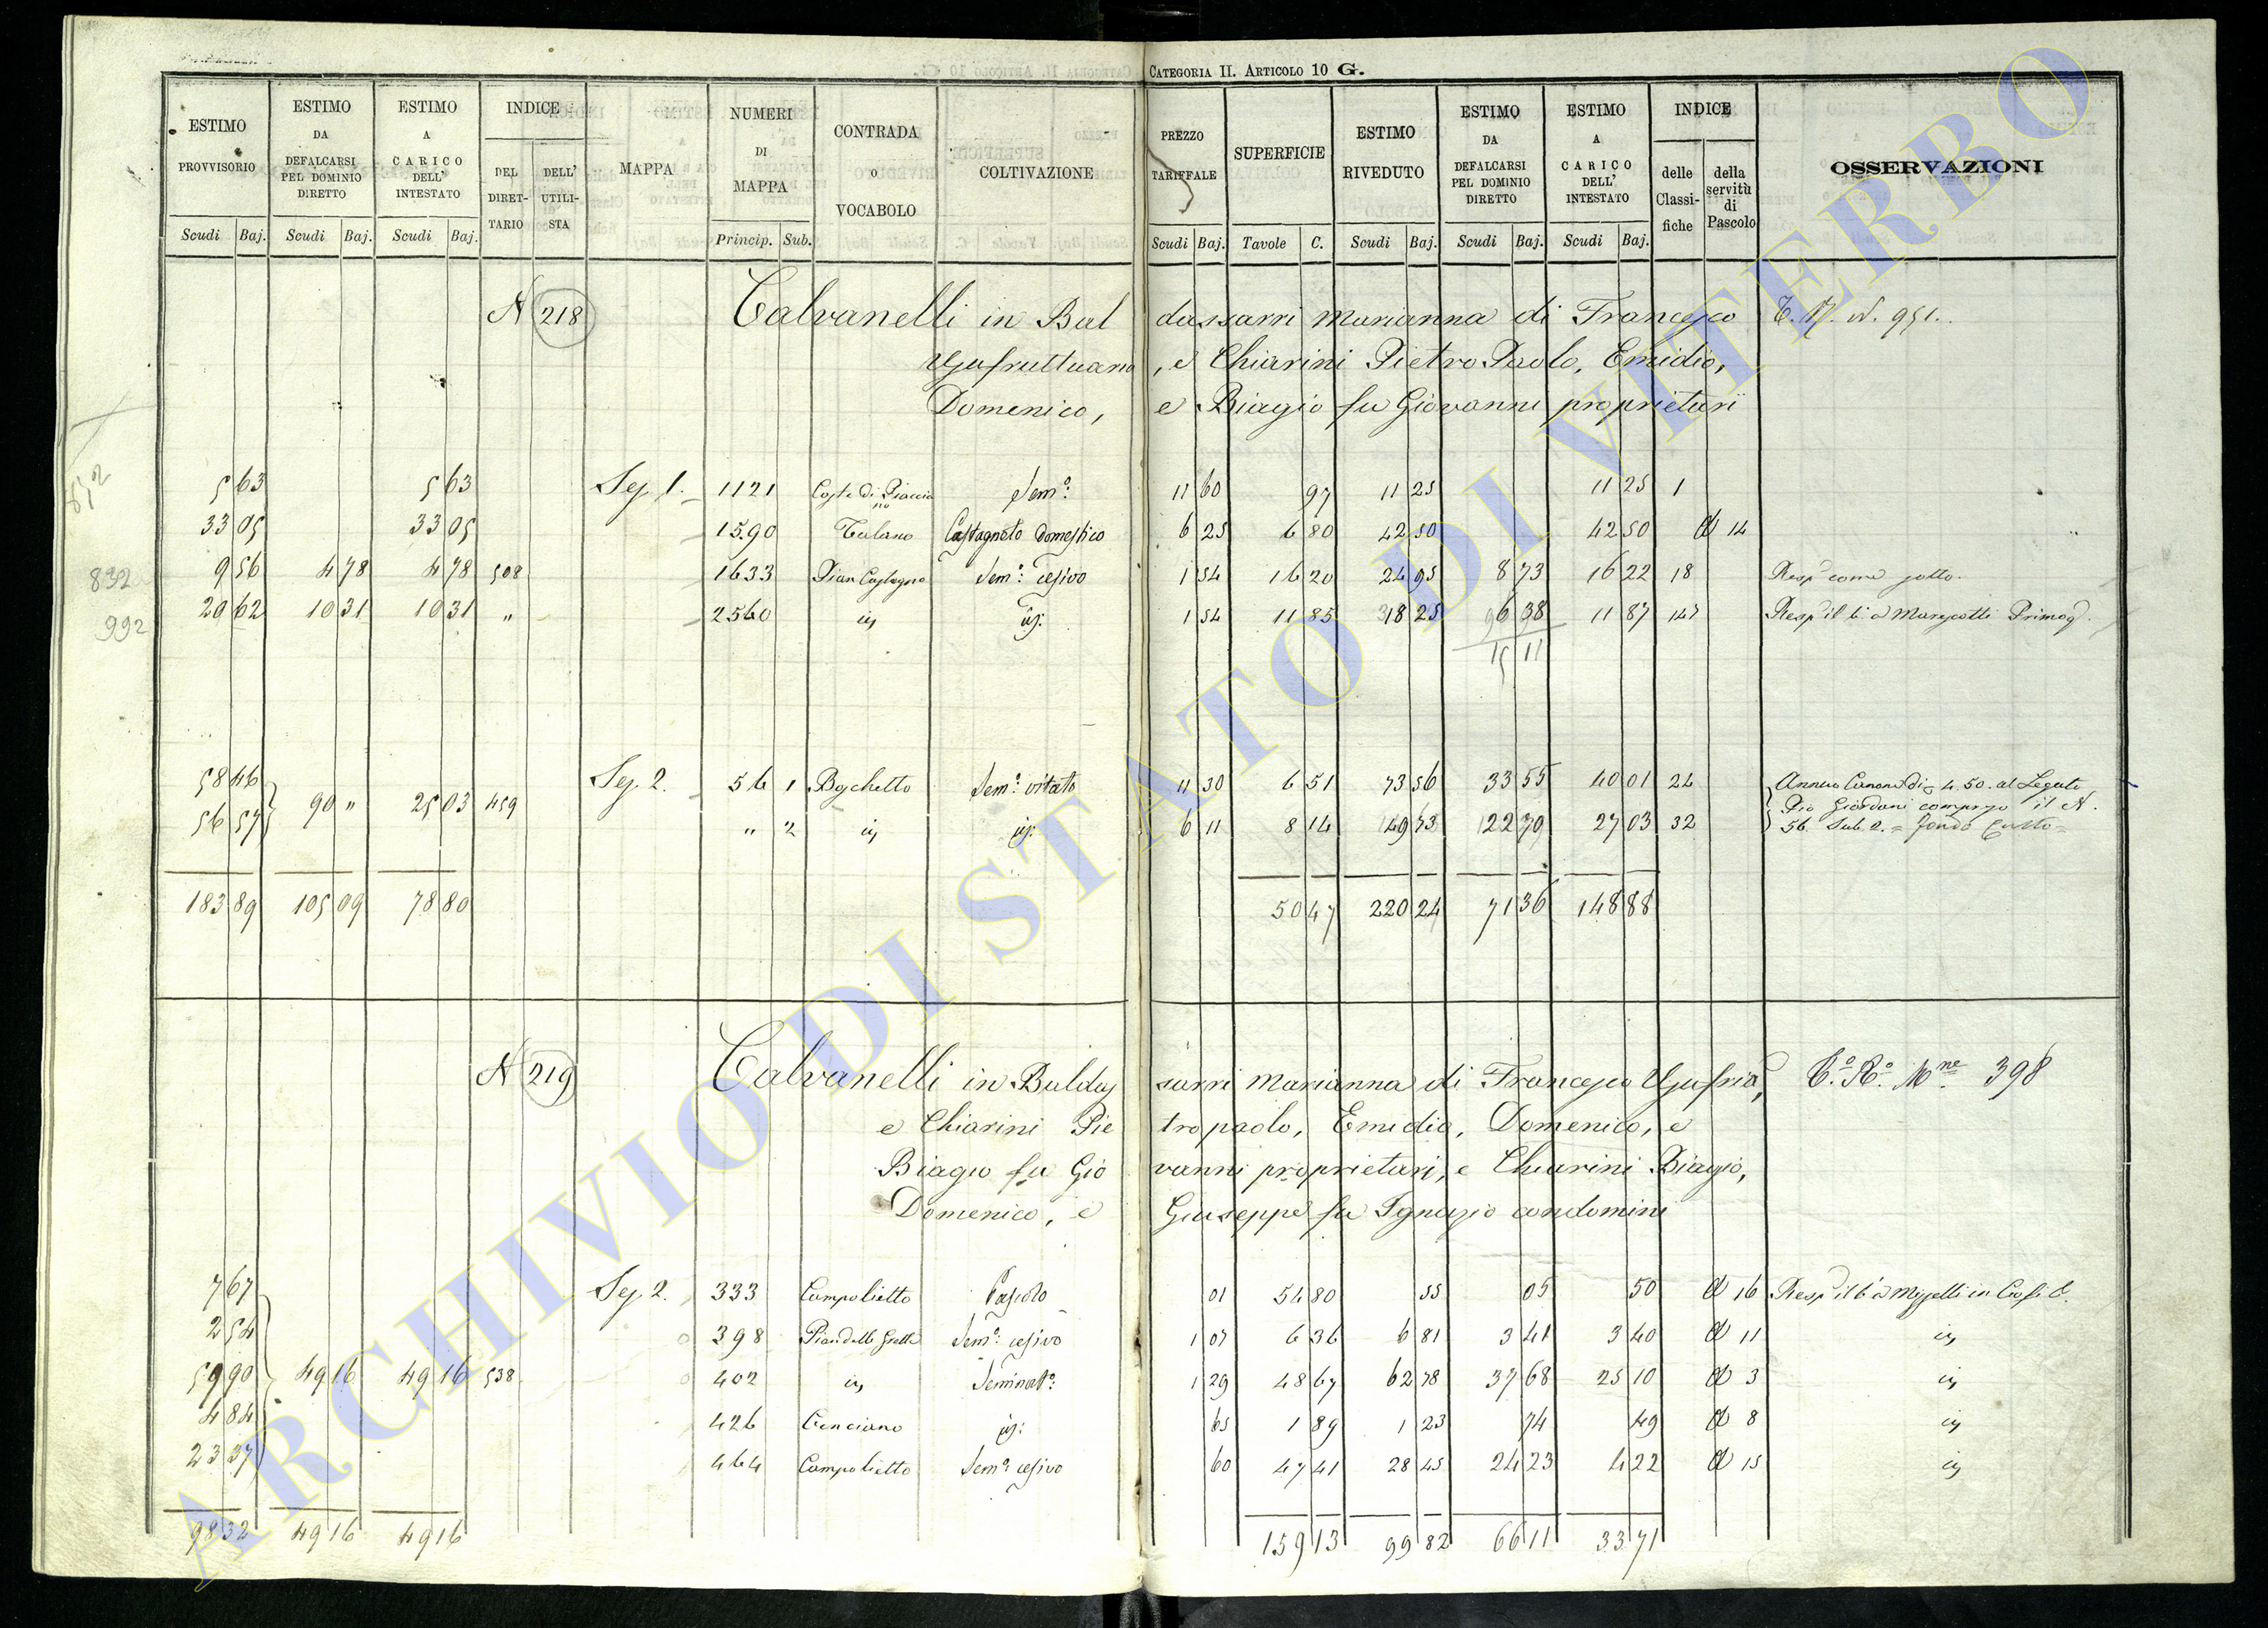 CATEGORIA II. ARTICOLO 10 G.
ESTIMO PROVVISORIO Scudi Baj. ESTIMO DA DEFALCARSI PEL DOMINIO DIRETTO Scudi Baj. ESTIMO A CARICO DELL' INTESTATO Scudi Baj. INDICE DEL DIRETTARIO DELL' UTILISTA MAPPA NUMERI DI MAPPA Princip. Sub. CONTRADA O VOCABOLO COLTIVAZIONE PREZZO TARIFFALE Scudi Baj. SUPERFICIE Tavole C. ESTIMO RIVEDUTO Scudi Baj. ESTIMO DA DEFALCARSI PEL DOMINIO DIRETTO Scudi Baj. ESTIMO A CARICO DELL' INTESTATO Scudi Baj. INDICE delle Classifiche della servitù di Pascolo OSSERVAZIONI
N 218 Calvanelli in Bal dassarri Marianna di Francesco 951.
Usufruttuaria, e Chiarini Pietro Paolo, Emidio,
Domenico, e Biagio fu Giovanni proprietari
5 63 5 63 Sez 1. 1121 Coste di Sem.o 11 60 97 11 25 11 25 1
33 05 33 05 1590 Talano Castagneto domestico 6 25 6 80 42 50 42 50 14
832 9 56 4 78 4 78 508 1633 Pian Castagno Sem.o cesivo 1 54 16 20 24 95 8 73 16 22 18 Resp come sotto.
992 20 62 10 31 10 31 " 2560 1 54 11 85 18 25 6 38 11 87 147 Resp il b. a Marescotti Primog.
15 11
58 46 Sez. 2. 56 1 Boschetto Sem.o vitato 11 30 6 51 73 56 33 55 40 01 24 Annuo Canone di 4.50. al Legato
56 57 90 " 25 03 459 " 2 6 11 8 14 49 73 22 70 27 03 32 Pio Giordani compreso il N.
56. Sub. 2. = fondo
183 89 105 09 78 80 50 47 220 24 71 36 148 88
N 219 Calvanelli in Baldas sarri Marianna di Francesco Usufr.ia, 398
e Chiarini Pie tropaolo, Emidio, Domenico, e
Biagio fu Gio vanni proprietari, e Chiarini Biagio,
Domenico, e Giuseppe fu Ignazio condomini
7 67 Sez 2. 333 Campolietto Pascolo 01 54 80 55 05 50 16 Resp il b a
2 54 398 Sem.o cesivo 1 07 6 36 6 81 3 41 3 40 11
59 90 49 16 49 16 538 402 Seminat.o 1 29 48 67 62 78 37 68 25 10 3
4 84 426 Cenciano 65 1 89 1 23 74 49 8
23 37 464 Campolietto Sem.o cesivo 60 47 41 28 45 24 23 4 22 15
98 32 49 16 49 16 159 13 99 82 66 11 33 71
ARCHIVIO DI STATO DI VITERBO